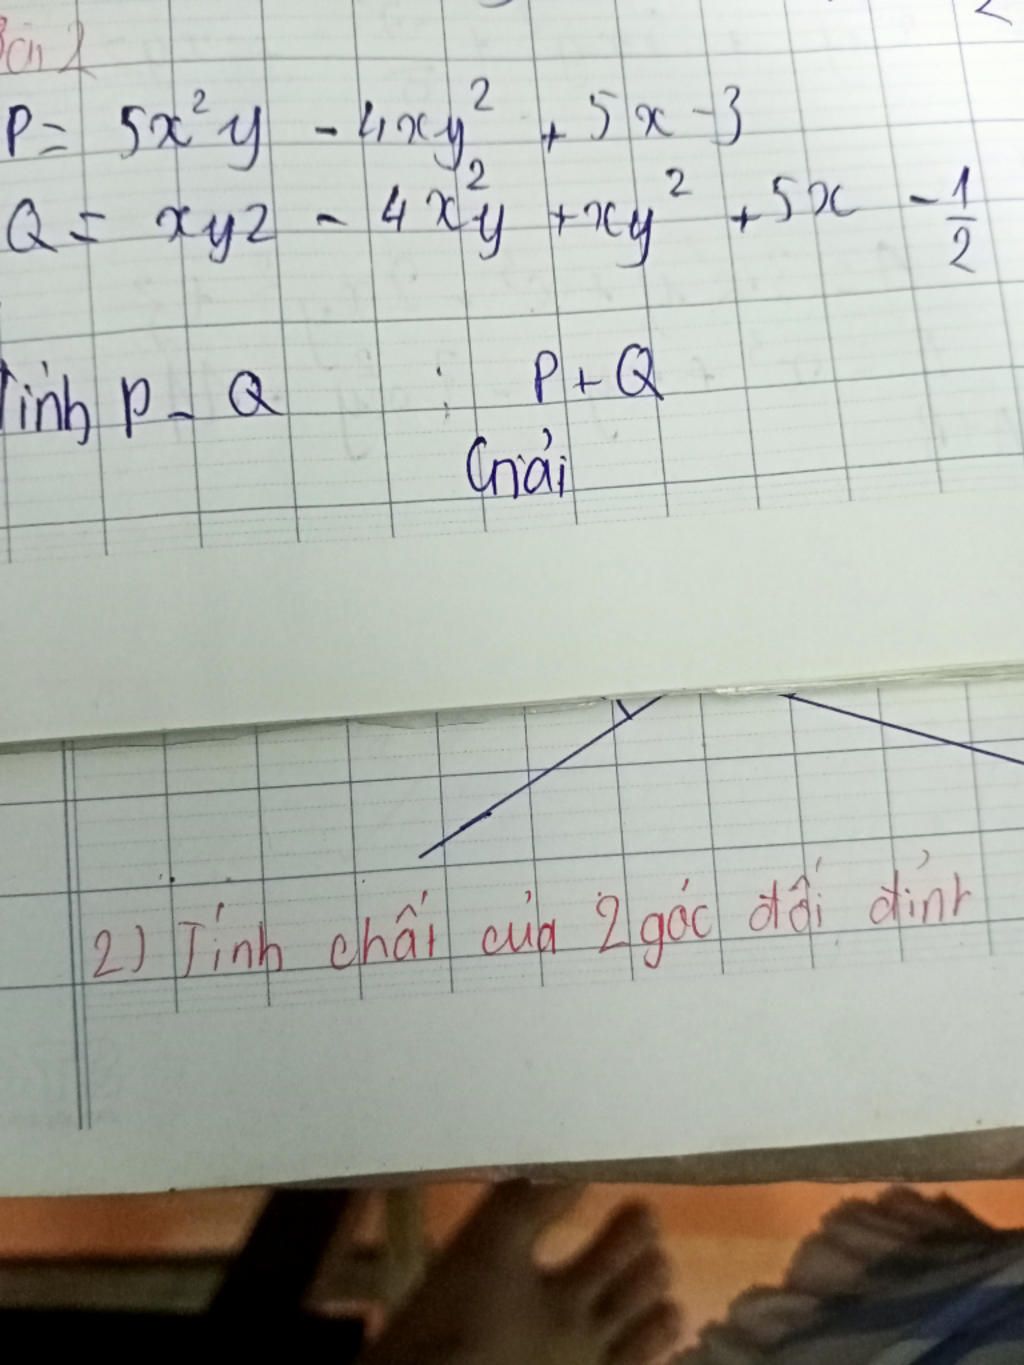 Bài 2
P = 5x²y - 4xy² + 5x - 3
Q = xyz - 4x²y + xy² + 5x - 1/2
Tính P - Q ; P + Q
Giải
2) Tính chất của 2 góc đối đỉnh